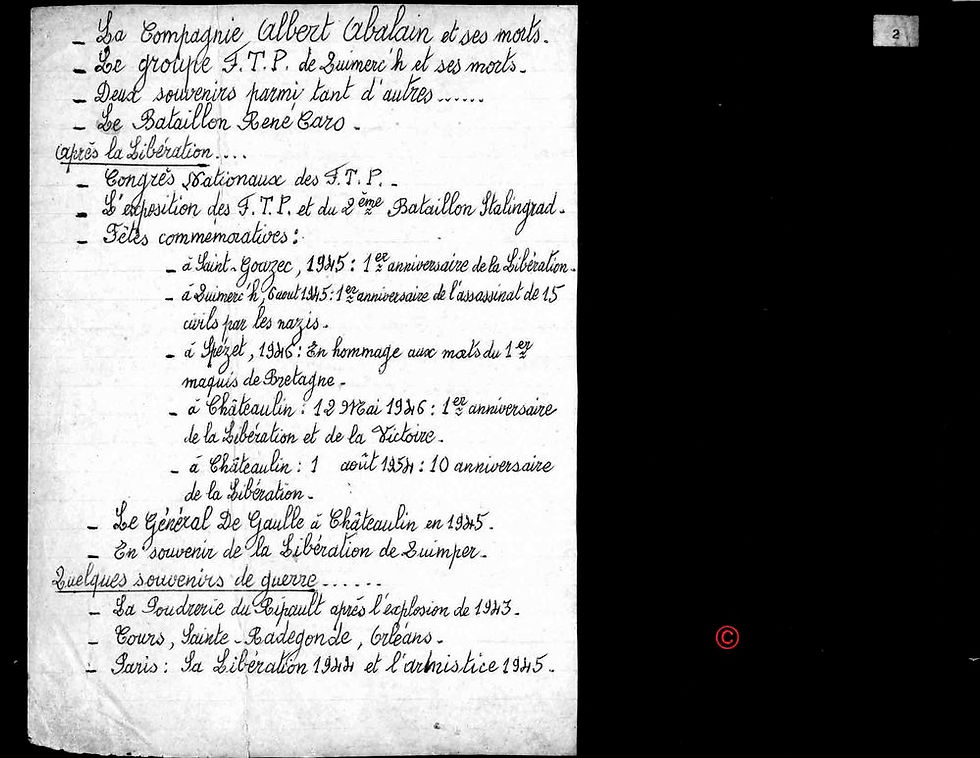 _ La Compagnie Albert Abalain et ses morts.
_ Le groupe F.T.P. de Quimerc'h et ses morts.
_ Deux souvenirs parmi tant d'autres......
_ Le Bataillon René Caro.
Après la Libération....
_ Congrès Nationaux des F.T.P._
_ L'exposition des F.T.P. et du 2ème Bataillon Stalingrad.
_ Fêtes commémoratives :
_ à Saint-Goazec, 1945 : 1er anniversaire de la Libération.
_ à Quimerc'h, 6 août 1945 : 1er anniversaire de l'assassinat de 15
civils par les nazis.
_ à Spézet, 1946 : En hommage aux morts du 1er
maquis de Bretagne.
_ à Châteaulin : 12 Mai 1946 : 1er anniversaire
de la Libération et de la Victoire.
_ à Châteaulin : 1 août 1954 : 10 anniversaire
de la Libération.
_ Le Général De Gaulle à Châteaulin en 1945.
_ En souvenir de la Libération de Quimper.
Quelques souvenirs de guerre......
_ La Poudrerie du Ripault après l'explosion de 1943.
_ Tours, Sainte-Radegonde, Orléans.
_ Paris : Sa Libération 1944 et l'armistice 1945.
2
©